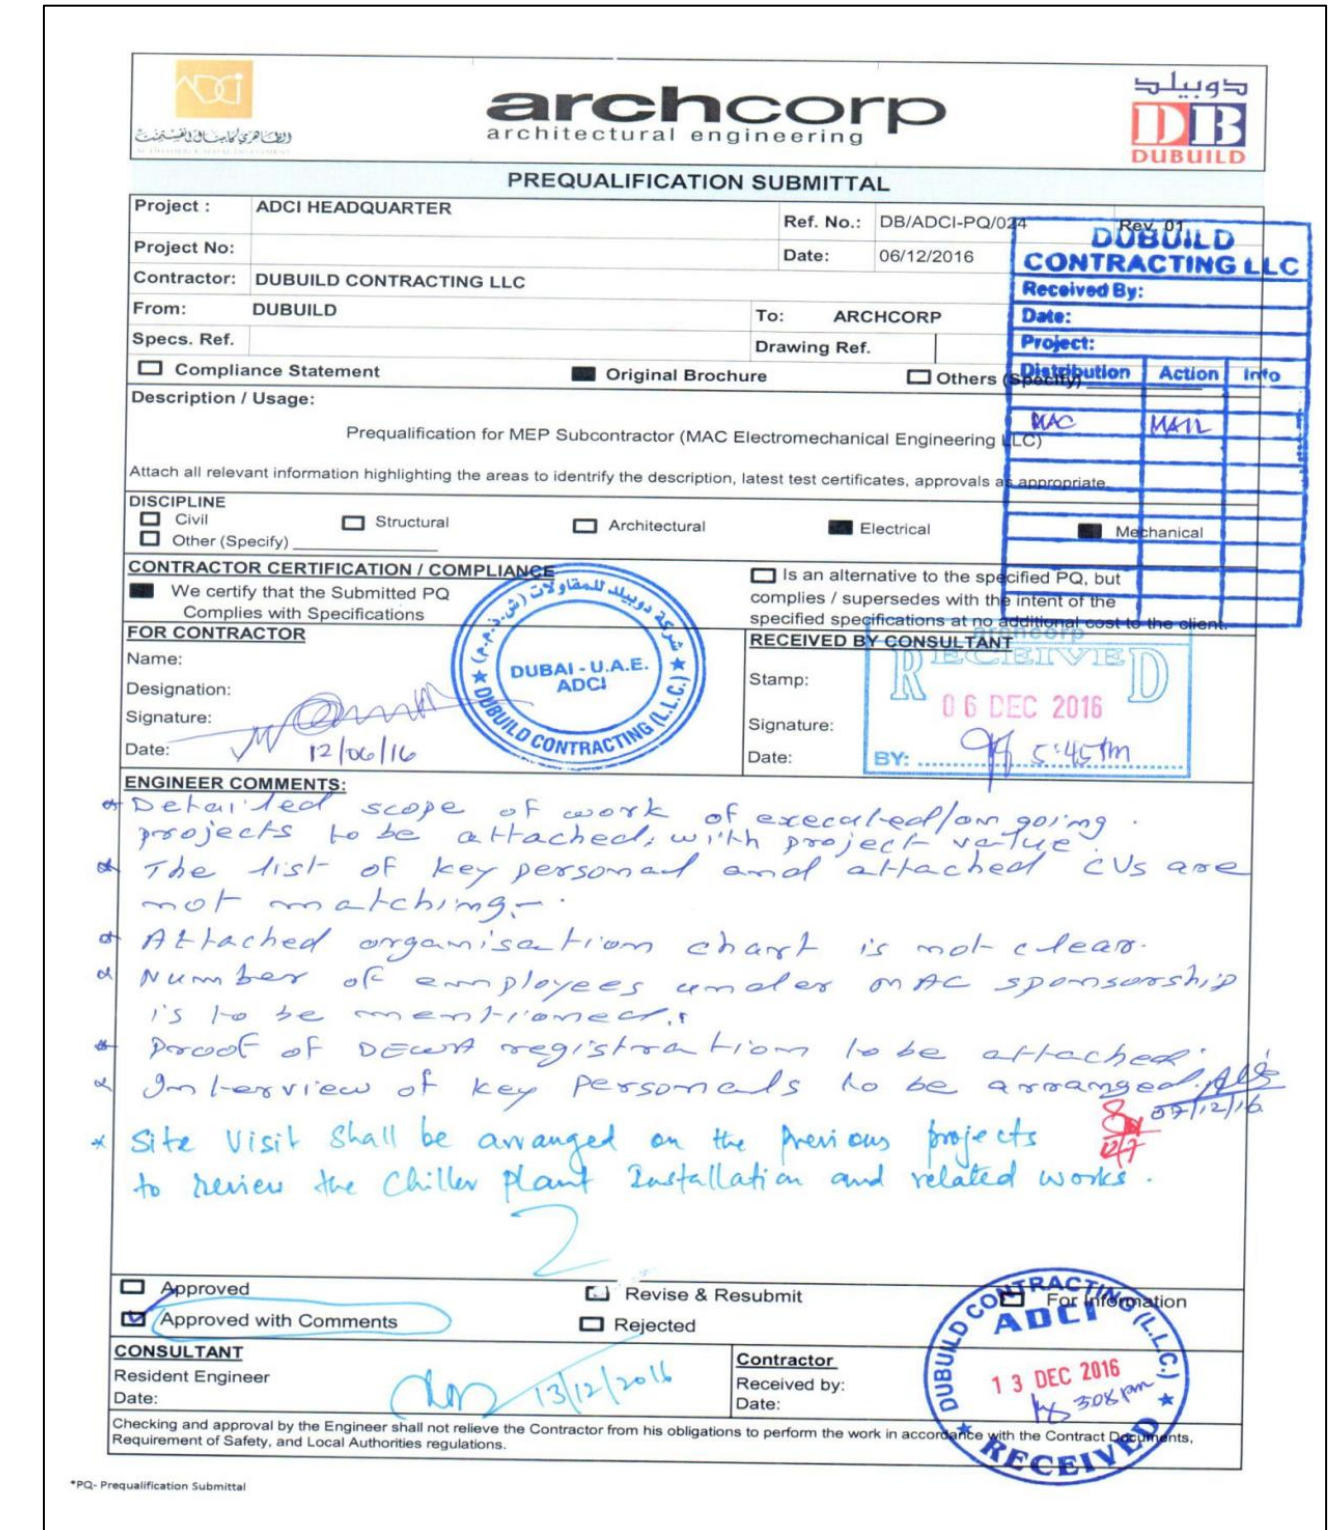 ADCI
archcorp
architectural engineering
دوبيلد
DB
DUBUILD
PREQUALIFICATION SUBMITTAL
Project : ADCI HEADQUARTER
Ref. No.: DB/ADCI-PQ/024 Rev. 01
Project No:
Date: 06/12/2016
Contractor: DUBUILD CONTRACTING LLC
From: DUBUILD
To: ARCHCORP
Specs. Ref.
Drawing Ref.
Compliance Statement Original Brochure Others (Specify)
DUBUILD
CONTRACTING LLC
Received By:
Date:
Project:
Distribution Action Info
MAC MAIL
Description / Usage:
Prequalification for MEP Subcontractor (MAC Electromechanical Engineering LLC)
Attach all relevant information highlighting the areas to identrify the description, latest test certificates, approvals as appropriate.
DISCIPLINE
Civil Structural Architectural Electrical Mechanical
Other (Specify)
CONTRACTOR CERTIFICATION / COMPLIANCE
We certify that the Submitted PQ
Complies with Specifications
Is an alternative to the specified PQ, but
complies / supersedes with the intent of the
specified specifications at no additional cost to the client.
FOR CONTRACTOR
Name:
Designation:
Signature:
Date: 12/06/16
شركة دوبيلد للمقاولات (ش.ذ.م.م)
DUBAI - U.A.E.
ADCI
DUBUILD CONTRACTING (L.L.C.)
RECEIVED BY CONSULTANT
Stamp:
Signature:
Date:
archcorp
RECEIVED
06 DEC 2016
BY: 5:45 Pm
ENGINEER COMMENTS:
Detailed scope of work of executed/on going
projects to be attached, with project value.
The list of key personal and attached CVs are
not matching.
Attached organisation chart is not clear.
Number of employees under MAC sponsorship
is to be mentioned.
Proof of DEWA registration to be attached.
Interview of key personals to be arranged.
07/12/16
12/7
* Site Visit Shall be arranged on the previous projects
to review the Chiller plant Installation and related works.
Approved Revise & Resubmit For Information
Approved with Comments Rejected
CONSULTANT
Resident Engineer
Date: 13/12/2016
Contractor
Received by:
Date:
DUBUILD CONTRACTING (L.L.C.)
ADCI
13 DEC 2016
3:08 pm
RECEIVED
Checking and approval by the Engineer shall not relieve the Contractor from his obligations to perform the work in accordance with the Contract Documents,
Requirement of Safety, and Local Authorities regulations.
*PQ- Prequalification Submittal